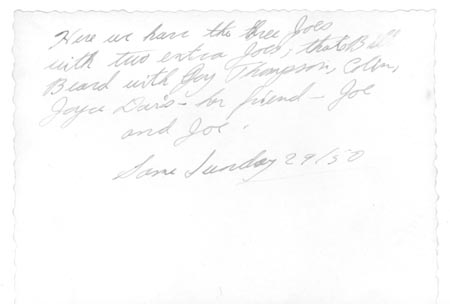 Here we have the three Joes
with two extra Joes, thats Bill
Beard with Guy Thompson, Colin,
Joyce Davis - her friend - Joe
and Joe.
Same Sunday 29/50